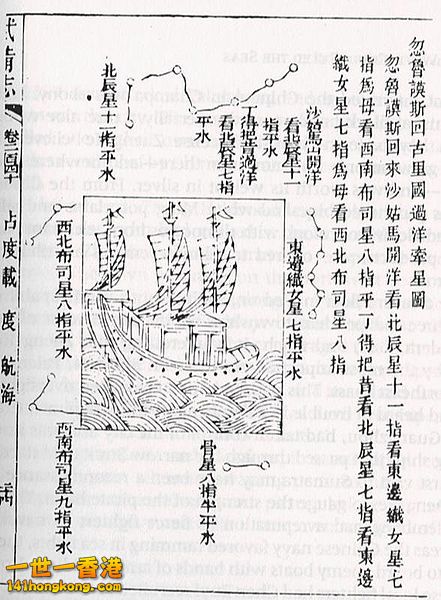 忽魯謨斯回古里國過洋牽星圖
忽魯謨斯回來沙姑馬開洋看北辰星十 指看東邊織女星七
指爲母看西南布司星八指平丁得把昔看北辰星七指看東邊
織女星七指爲母看西北布司星八指
沙姑馬開洋
看北辰星十
指平水
丁得把昔過洋
看北辰星七指
平水
北辰星十一指平水
東邊織女星七指平水
西北布司星八指平水
骨星八指半平水
西南布司星九指平水
武備志
占度載 度 航海
一世一香港
141hongkong.com